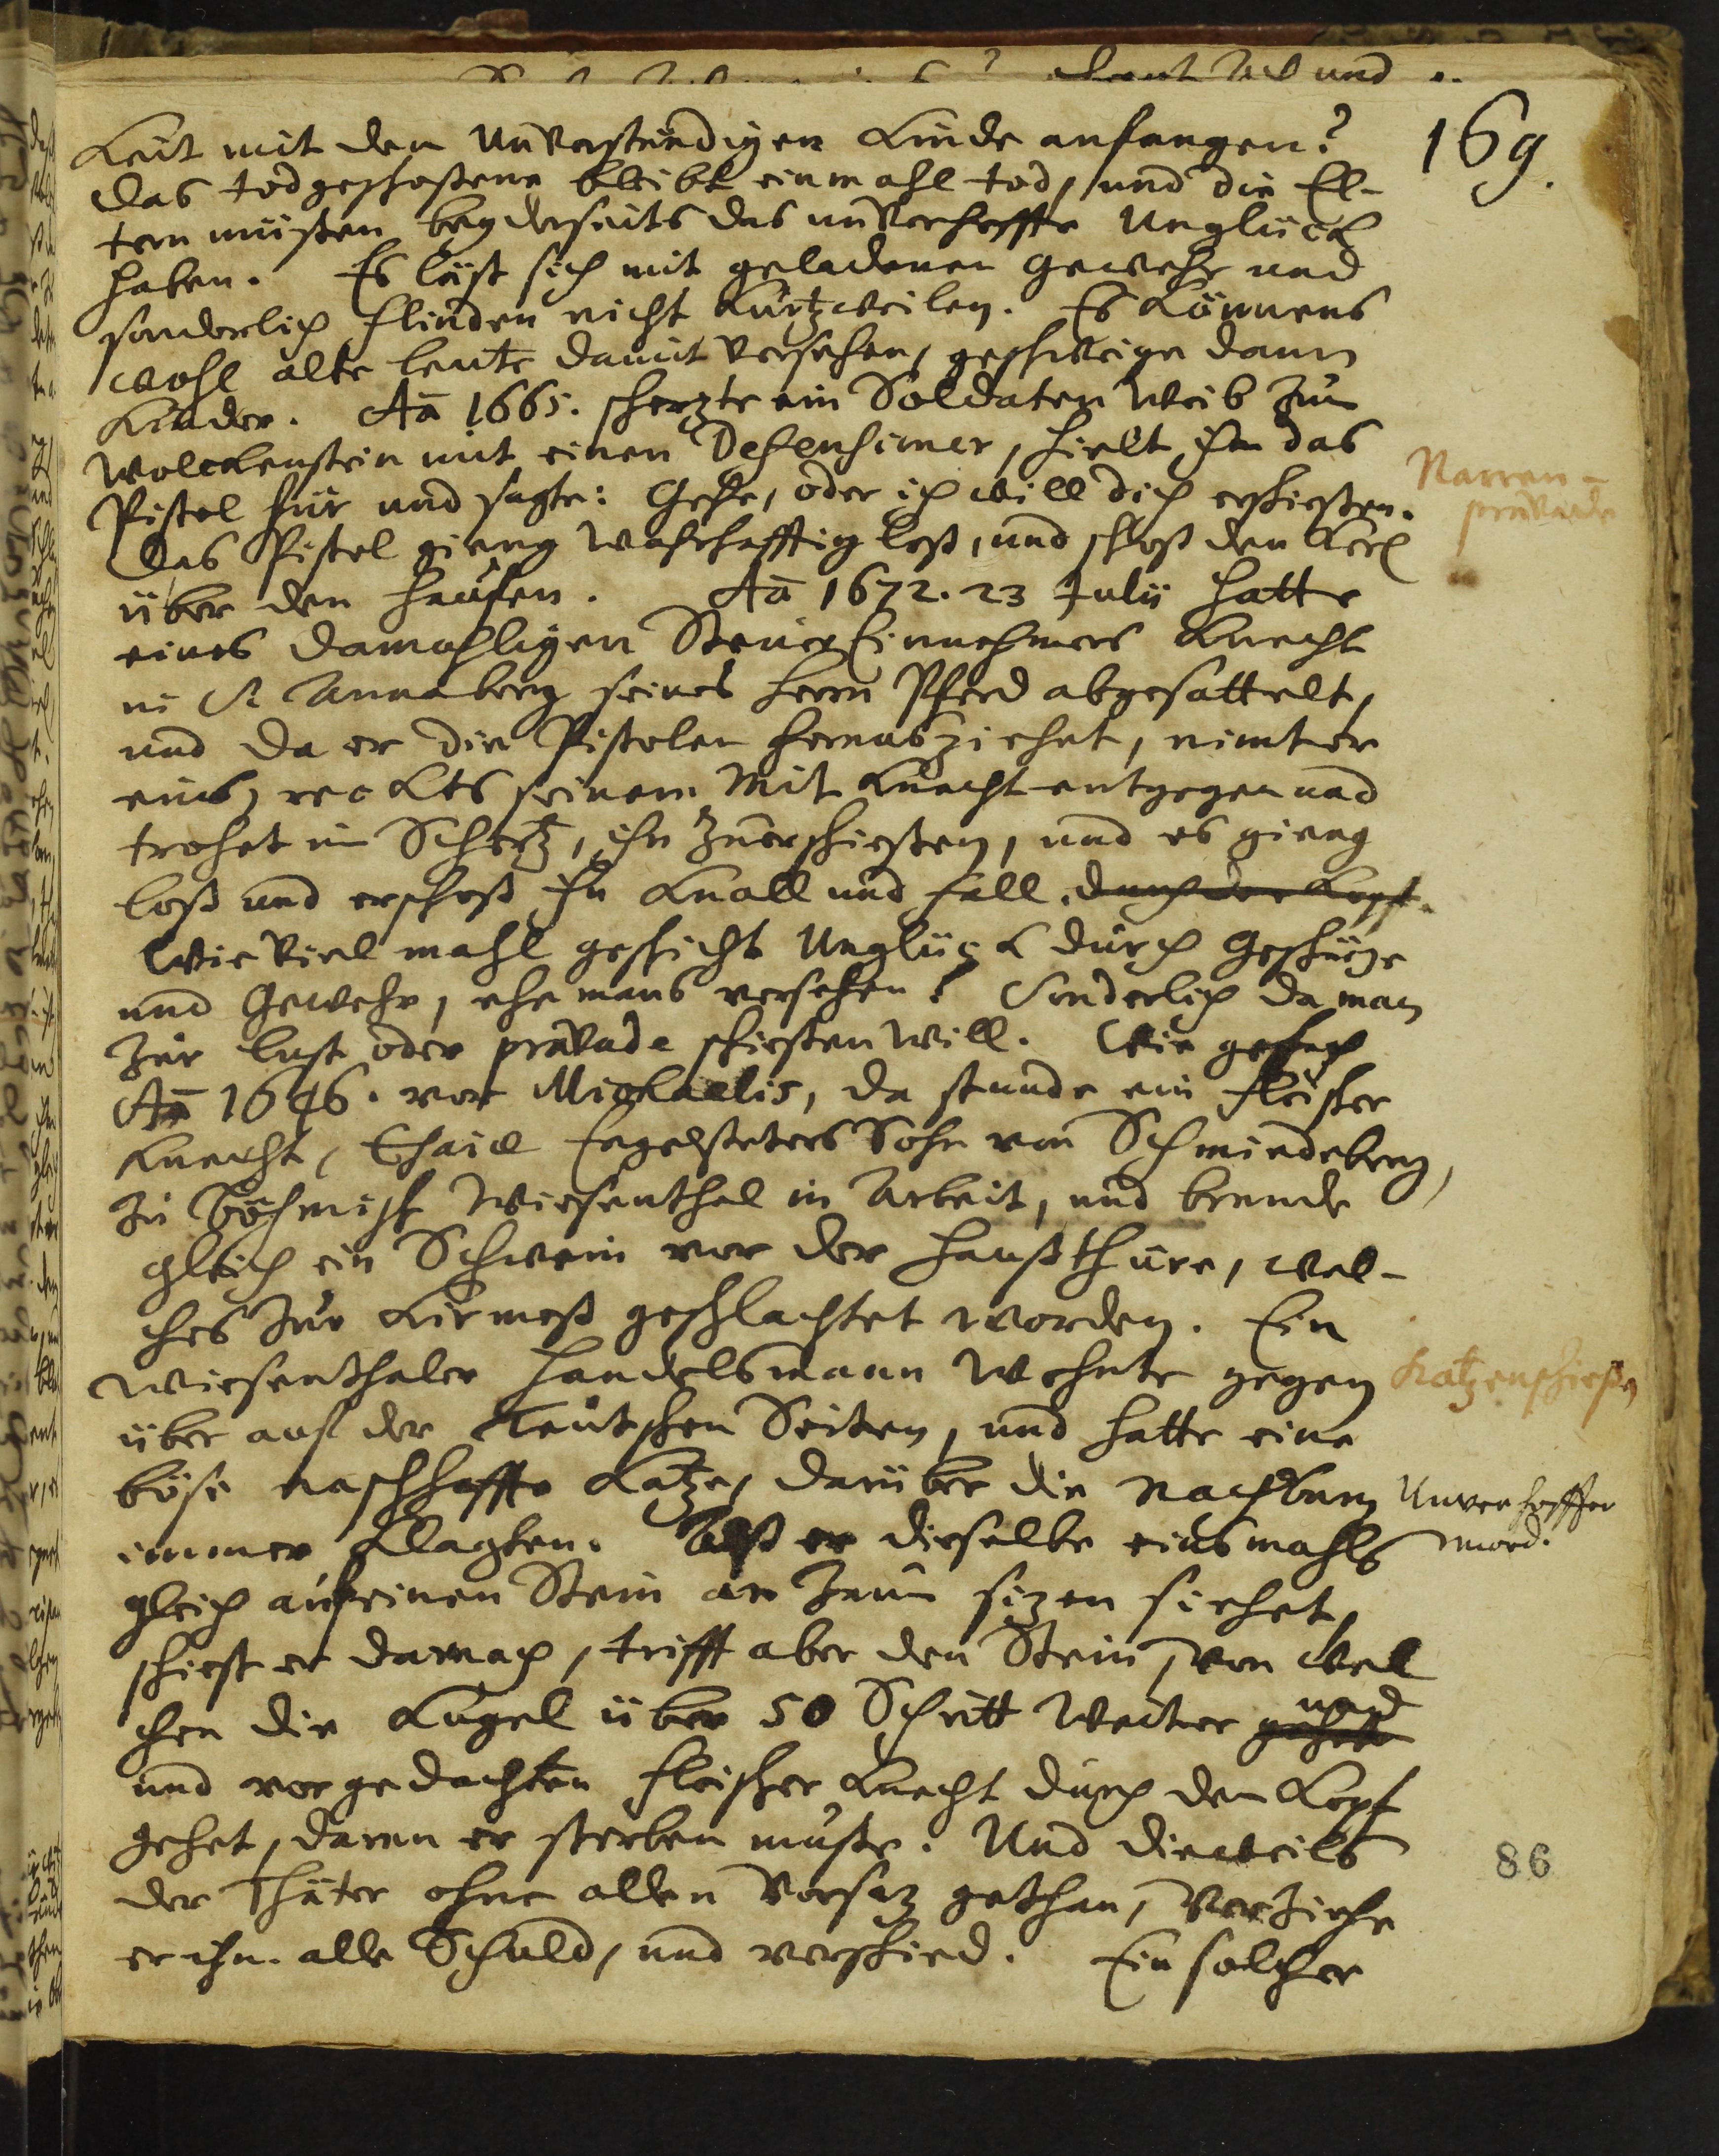 169.
keit mit den Unverständigen Kinde anfangen?
das todgeschoßene bleibt einmahl tod, und die El-
tern müsten beyderseits das unverhoffte Unglück
haben. Es läst sich mit geladenen Gewehr und
sonderlich Flinden nicht kurtzweilen. Es könnens
wohl alte leute damit versehen, geschweige dann
Kinder. Aō 1665. scherzte ein Soldaten Weib zum
Wolckenstein mit einen Defensimer, hielt ihm das
Pistol für und sagte: Gehe, oder ich will dich erschießen.
Das Pistol gieng wahrhafftig loß, und schoß den Kerl
über den hauffen. Aō 1672. 23 Julii hatte
eines damahligen SteuerEinnehmers Knecht
in St Annaberg seines herrn Pferd abgesattelt,
und da er die Pistolen herausziehet, nimt er
eins, reckts seinem Mit Knecht entgegen und
trohet im Schertz, ihn zuerschießen, und es gieng
loß und erschoß ihn Knall und fall. durch den Kopff.
Wie viel mahl geschicht Unglück durch Geschütze
und Gewehr, ehe mans versehen! Sonderlich da man
zur lust oder pravade schiesten will. Wie geschach
Aō 1646. vor Michaelis, da stunde ein fleischer
Knecht, Engelsteters Sohn von Schmiedeberg,
zu Böhmisch Wiesenthal in Arbeit, und brende
gleich ein Schwein vor der Haußthüre, wel-
ches zur Kirmeß geschlachtet worden. Ein
Wiesenthaler Handelsmann wohnte gegen
über auf der Teutschen Seiten, und hatte eine
böse naschhaffte Katze, darüber die Nachbarn
immer klagten. Alß er dieselbe einsmahls
gleich auf einen Stein am Zaun sizen siehet,
schiest er darnach, trifft aber den Stein, von wel
chen die Kugel über 50 Schritt weiter
und vorgedachten fleischer Knecht durch den Kopf
gehet, daran er sterben muste. Und dieweils
der Thäter ohne allen Vorsaz gethan, verziehe
er ihn alle Schuld, und verschied. Ein solcher
Narren-
pravade
Katzenschiesen
Unverhoffter
mord.
86